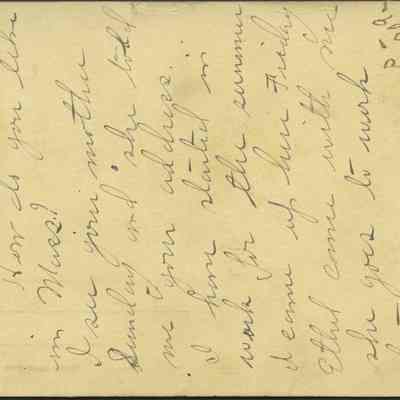 How do you like
in Mass?
I see your mother
Sunday and she told
me your address.
I have started in
work for the summer
I came up here Friday
Ethel came with me
she goes to work